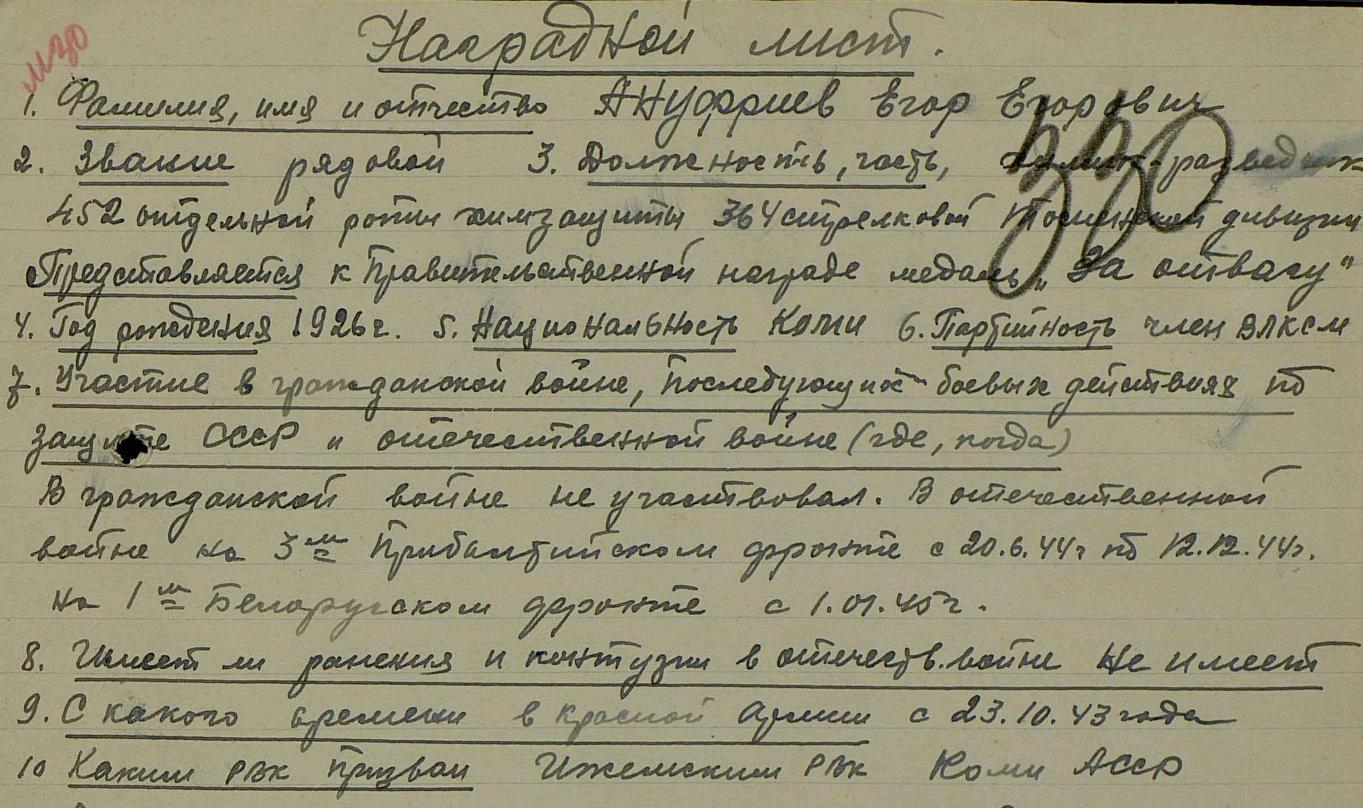 Наградной лист.
1. Фамилия, имя и отчество Ануфриев Егор Егорович
2. Звание рядовой 3. Должность, часть, химик-разведчик
452 отдельной роты химзащиты 364 стрелковой Тосненской дивизии
Представляется к Правительственной награде медаль „За отвагу"
4. Год рождения 1926 г. 5. Национальность Коми 6. Партийность член ВЛКСМ
7. Участие в гражданской войне, последующих боевых действиях по
защите СССР и отечественной войне (где, когда)
В гражданской войне не участвовал. В отечественной
войне на 3м Прибалтийском фронте с 20.6.44г по 12.12.44г.
на 1м Белорусском фронте с 1.01.45г.
8. Имеет ли ранения и контузии в отечеств. войне не имеет
9. С какого времени в Красной Армии с 23.10.43 года
10 Каким РВК призван Ижемским РВК Коми АССР